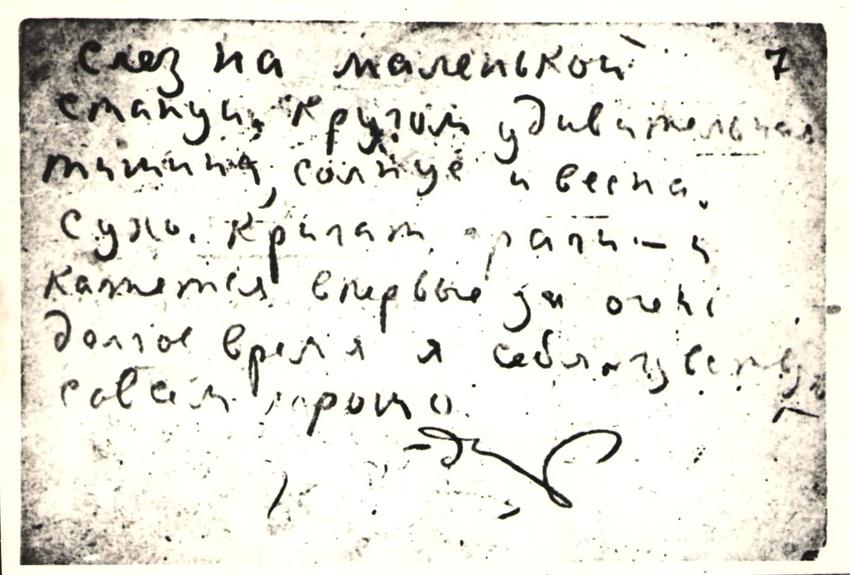 слез на маленькой 7
станции, Кругом удивительная
тишина, солнце и весна.
Сухо. Кричат грачи — и
кажется впервые за очень
долгое время я себя чувствую
совсем хорошо